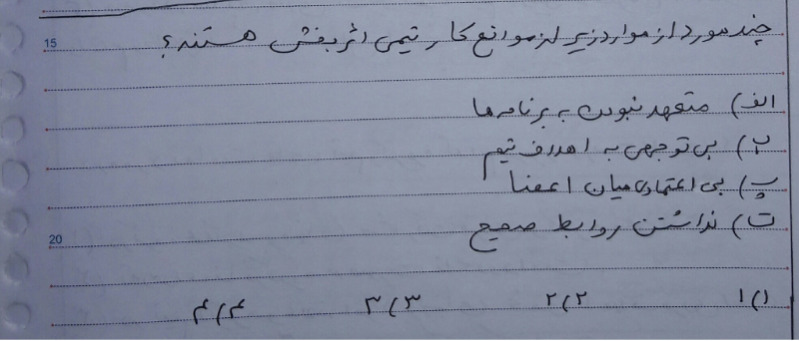 15
چند مورد از موارد زیر از موانع کار تیمی اثربخش هستند؟
الف) متعهد نبودن به برنامه ها
ب) بی توجهی به اهداف تیم
پ) بی اعتمادی میان اعضا
ت) نداشتن روابط صحیح
20
۱) ۱ ۲) ۲ ۳) ۳ ۴) ۴